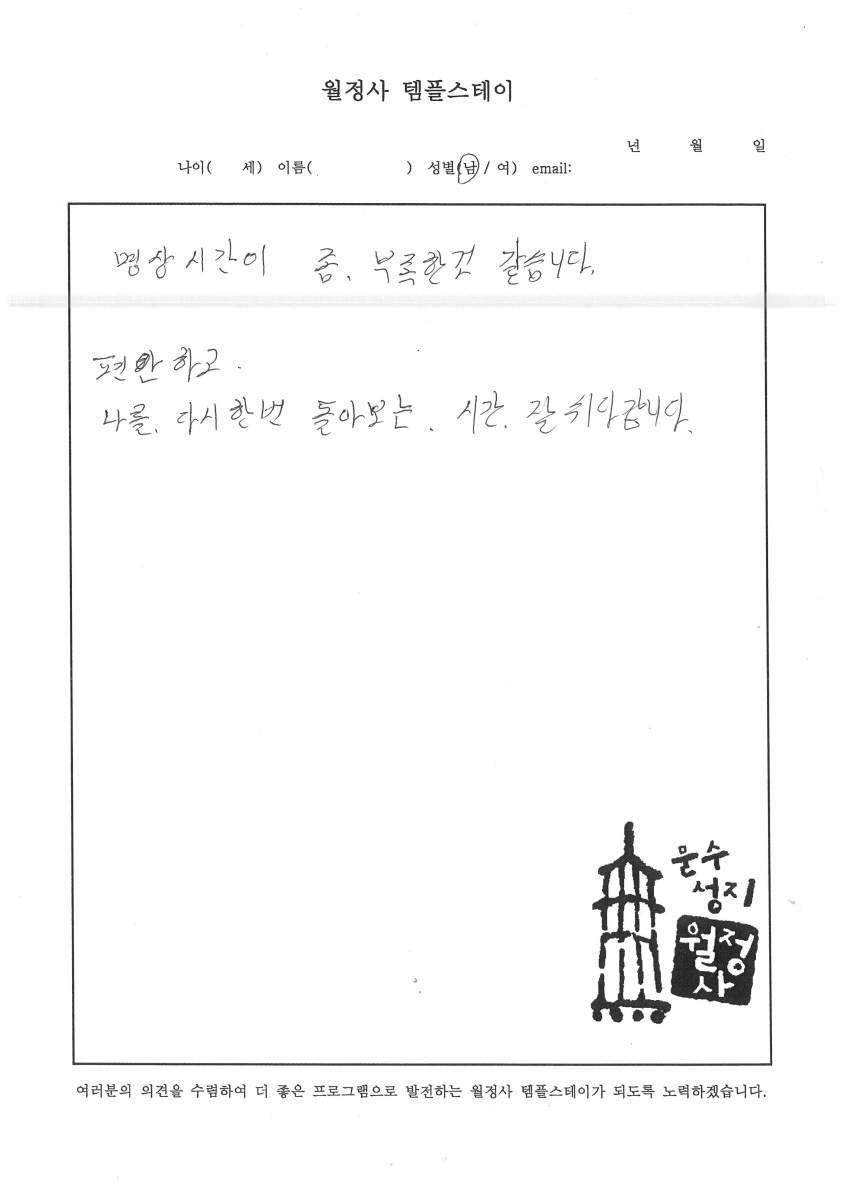 월정사 템플스테이
년 월 일
나이( 세) 이름( ) 성별(남 / 여) email:
명상 시간이 좀, 부족한것 같습니다.
편안하고.
나를, 다시 한번 돌아보는. 시간. 잘 쉬다갑니다.
문수
성지
월정
사
여러분의 의견을 수렴하여 더 좋은 프로그램으로 발전하는 월정사 템플스테이가 되도록 노력하겠습니다.